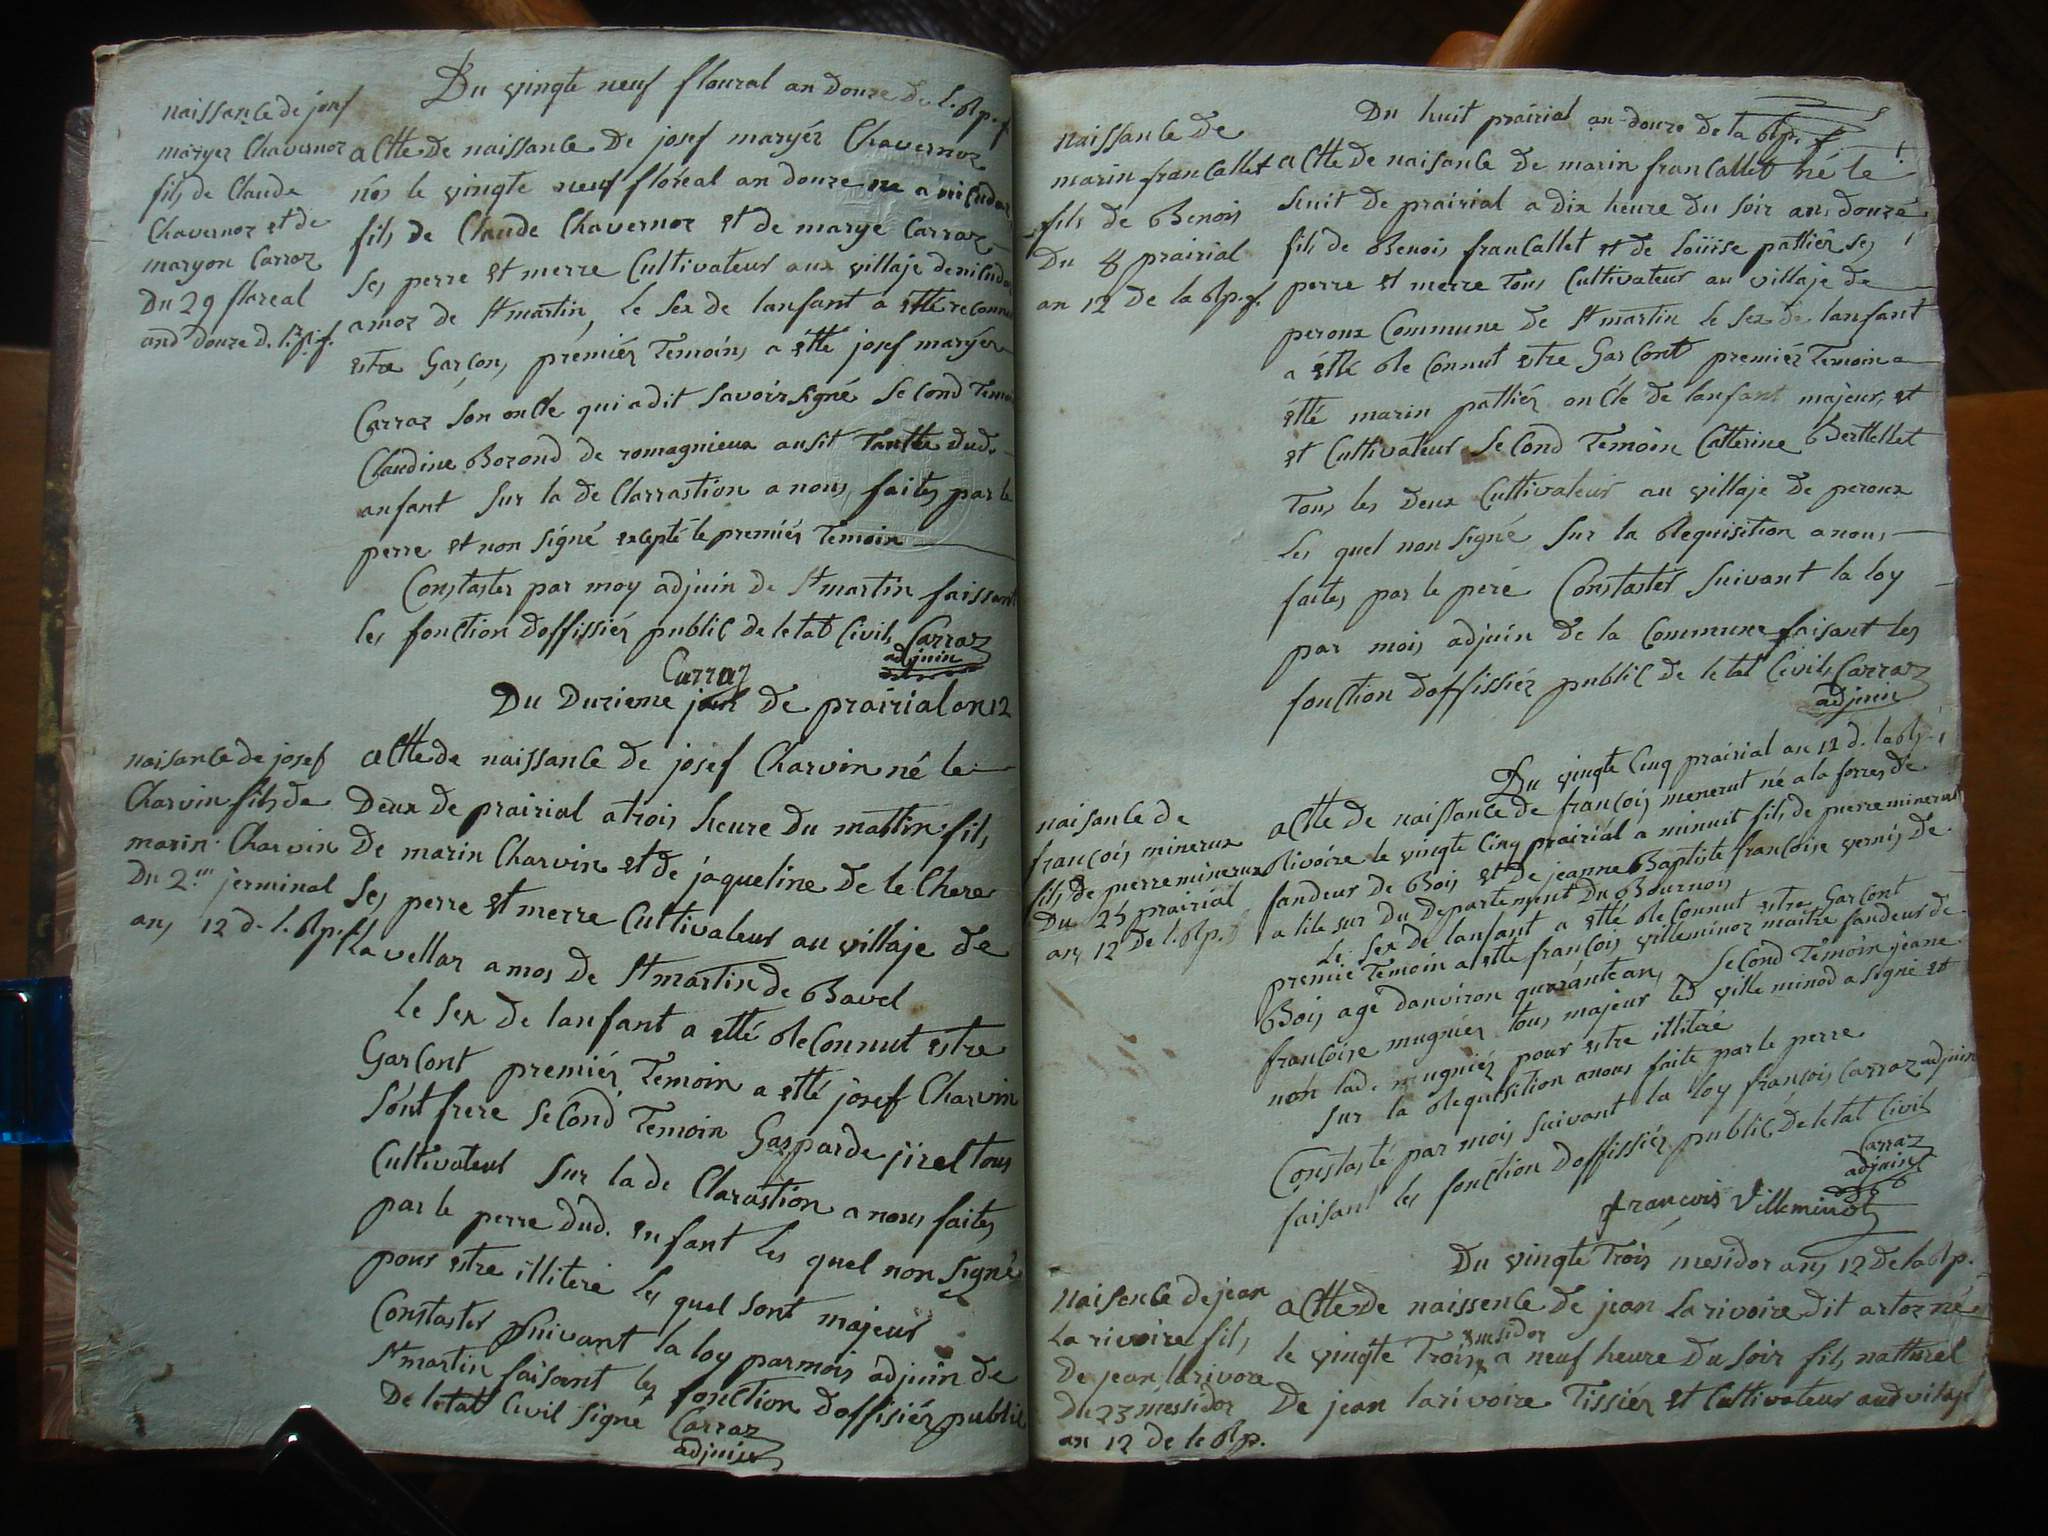 Du vingte neuf floural an douze De l. Rp. f.
naissance de josef
maryer Chavernoz
fils de Claude
Chavernoz et de
maryon Carraz
Du 29 floreal
and douze d. l. rp. f.
actte de naissance De josef maryér Chavernoz
nés le vingte neuf floréal an douze ne a
fils de Claude Chavernoz et de marye Carraz
ses perre et merre Cultivateur aux villaje de
amoz de St martin, le sex de lanfant a etté reconnu
estre Garçon, premiér Temoins a etté josef maryér
Carraz son oncle qui a dit savoir signé second Temoin
Claudine Borond de romagnieux ausit Tantte dud.
anfant sur la de Clarrastion a nous faites par le
perre et non signé exlepté le premiér Temoin
Constaster par moy adjuin de St martin faissant
les fonction doffissiér public de letat Civil, Carraz
adjuin
Carraz
Du Duzieme jour de prairial an 12
naisance de josef
Charvin fils de
marin Charvin
Du 2.m jerminal
ans 12 d. l. Rp. f.
actte de naissance de josef Charvin né le
Deux de prairial a trois heure du mattin fils
De marin Charvin et de jaqueline de le Chere
ses perre et merre Cultivateur au villaje de
la vellaz a mos de St martin de Bavel
le sex de lanfant a etté Reconnut estre
Garcont premiér Temoin a etté josef Charvin
sont frere second Temoin Gasparde jirel tous
Cultivateur sur la de Clarastion a nous faites
par le perre dud. enfant les quel non signé
pour estre illiteré les quel sont majeur
Constaster suivant la loy par mois adjuin de
St martin faisant les fonction doffisiér public
De letat Civil signé Carraz
adjuin
Du huit prairial an douze de la Rp. f.
naissance de
marin francallet
fils de Benois
Du 8 prairial
an 12 de la Rp. f.
actte de naisance de marin francallet né le
huit de prairial a dix heure du soir ans douze
fils de Benois francallet et de loüise pattiér ses
perre et merre tous Cultivateur au villaje de
peroux Commune de St martin le sex de lanfant
a étté Re Connut estre Garcont premiér Temoin a
étté marin pattiér oncle de lanfant majeur, et
et Cultivateur second Temoin Catterine Berthellet
tous les deux Cultivateur au villaje de peroux
les quel non signé sur la Requisition a nous
faites par le peré Constaster suivant la loy
par mois adjuin de la Commune faisant les
fonction doffissiér public de letat Civil, Carraz
adjuin
Du vingte Cinq prairial an 12 d. la Rp.
naisance de
françois minerux
fils de pierre minerux
Du 25 prairial
ans 12 De l. Rp. f
actte de naissance de françois menerut né a la forres de
Rivoire le vingte Cinq prairial a minuit fils de pierre minerut
fandeur de Bois et de jeanne Baptiste françoise vernis de
a lile sur Du Departement Du Bournois
le sex de lanfant a etté Re Connut estre Garcont
premié Temoin a etté françois villeminoz maitre fandeur de
Bois agé danviron quarante an, second Temoin jeane
francoise mugniér tous majeur led ville minod a signé et
non lad. mugniér pour estre illiteré
sur la Requisition a nous faite par le perre
Constasté par mois suivant la loy françois Carraz adjuin
faisant les fonction doffissiér public, De letat Civil
Carraz
adjuin
françois Villeminot
Du vingte trois mesidor ans 12 De la Rp.
Naisence de jean
La rivoire fils
De jean larivore
Du 23 messidor
an 12 de le Rp.
actte de naissence de jean larivoire dit artoz né
le vingte Trois mesidor a neuf heure du soir fils natturel
De jean larivoire Tissiér et Cultivateur aud vilaje